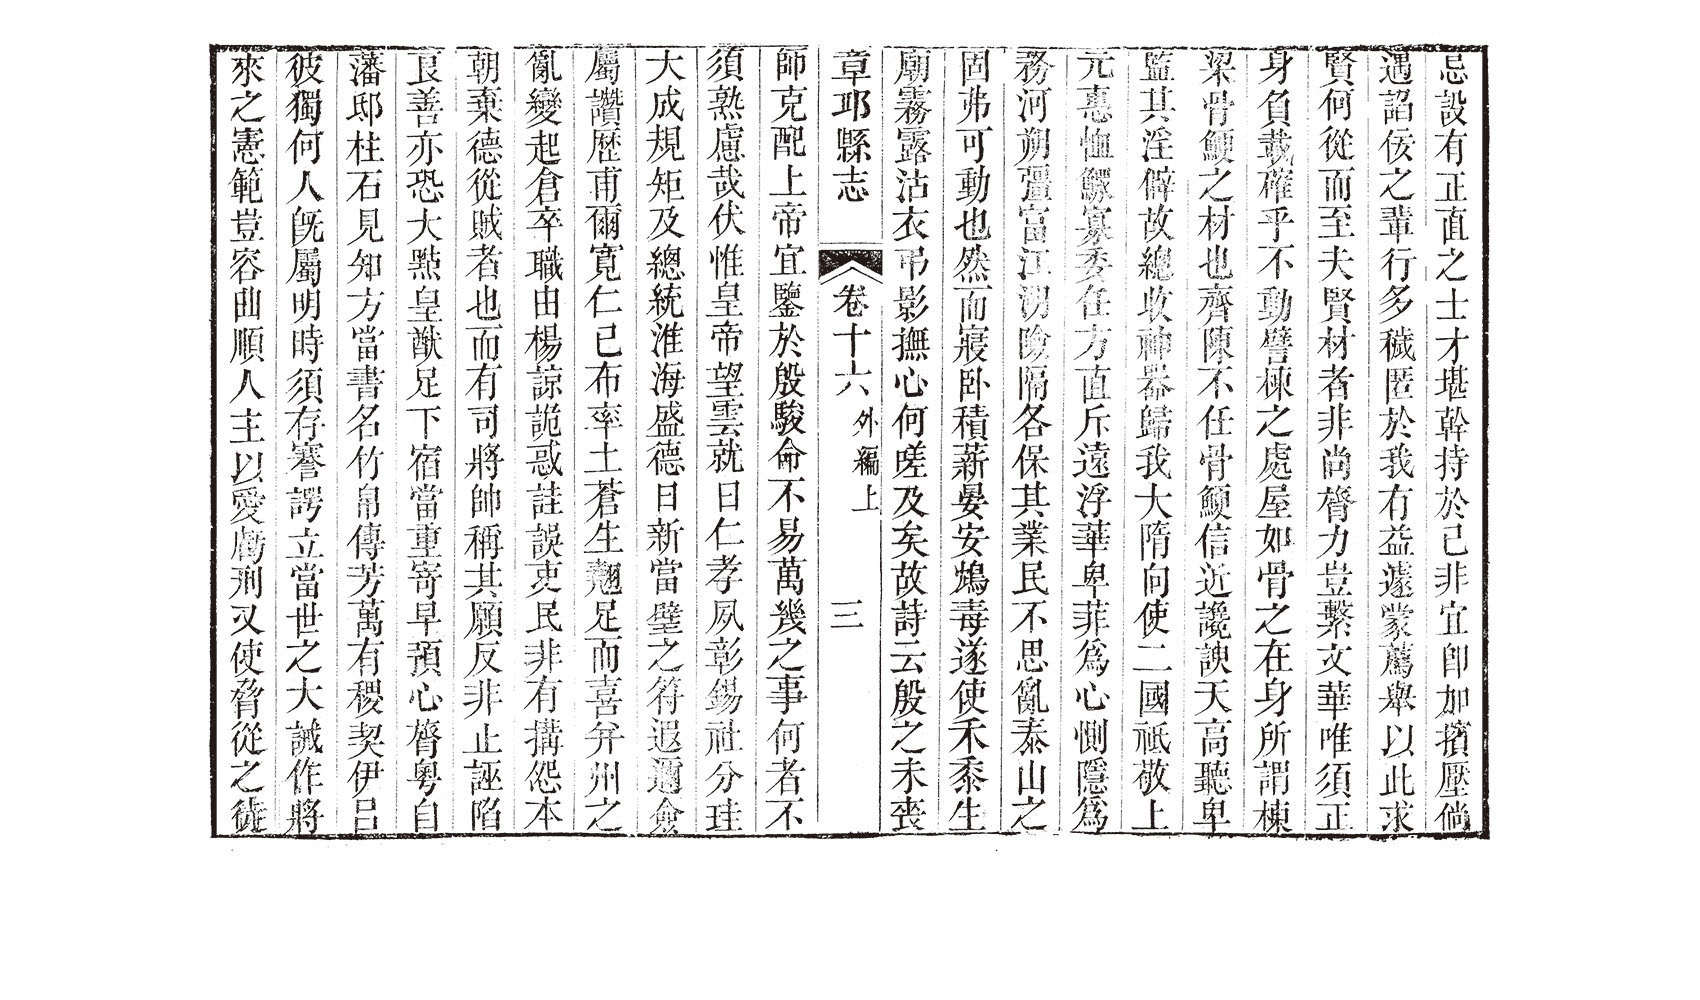 忌設有正直之士才堪幹持於己非宜卽加擯壓倘
遇諂佞之輩行多穢匿於我有益遽蒙薦舉以此求
賢何從而至夫賢材者非尚膂力豈繫文華唯須正
身負載確乎不動譬棟之處屋如骨之在身所謂棟
梁骨鯁之材也齊陳不任骨鯁信近讒諛天高聽卑
監其淫僻故總收神器歸我大隋向使二國祗敬上
元惠恤鰥寡委任方直斥遠浮華卑菲爲心惻隱爲
務河朔彊富江湖險隔各保其業民不思亂泰山之
固弗可動也然而寢卧積薪晏安鴆毒遂使禾黍生
廟霧露沾衣弔影撫心何嗟及矣故詩云殷之未喪
章邱縣志
卷十六 外編上
三
師克配上帝宜鑒於殷駿命不易萬幾之事何者不
須熟慮哉伏惟皇帝望雲就日仁孝夙彰錫社分珪
大成規矩及總統淮海盛德日新當璧之符遐邇僉
屬讚歷甫爾寬仁已布率土蒼生翹足而喜幷州之
亂變起倉卒職由楊諒詭惑詿誤吏民非有搆怨本
朝棄德從賊者也而有司將帥稱其願反非止誣陷
良善亦恐大㸃皇猷足下宿當重寄早預心膂粵自
藩邸柱石見知方當書名竹帛傳芳萬有稷契伊呂
彼獨何人旣屬明時須存謇諤立當世之大誡作將
來之憲範豈容曲順人主以愛虧刑又使脅從之徒